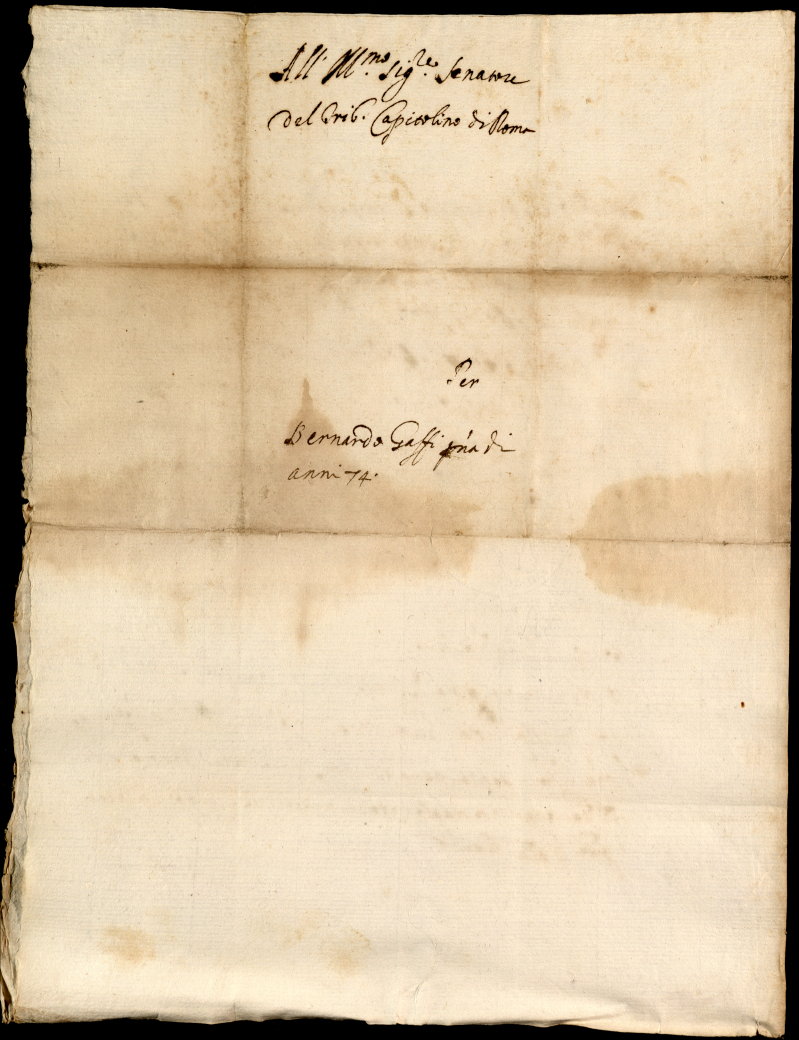 All' Ill.mo Sig.re Senatore
del Trib. Capitolino di Roma
Per
Bernardo Gaffi di
anni 74.